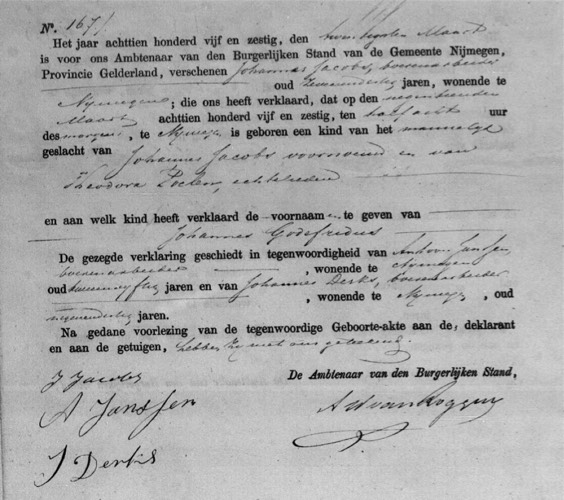 N°. 167
Het jaar achttien honderd vijf en zestig, den twintigsten Maart
is voor ons Ambtenaar van den Burgerlijken Stand van de Gemeente Nijmegen,
Provincie Gelderland, verschenen Johannes Jacobs, boerenarbeider
oud jaren, wonende te
Nijmegen; die ons heeft verklaard, dat op den negentienden
Maart achttien honderd vijf en zestig, ten half acht uur
des morgens, te Nijmegen is geboren een kind van het mannelijk
geslacht van Johannes Jacobs voornoemd en van
Theodora echtelieden
en aan welk kind heeft verklaard de voornaamen te geven van
Johannes Godefridus
De gezegde verklaring geschiedt in tegenwoordigheid van Antoon Janssen,
boerenarbeider, wonende te Nijmegen
oud jaren en van Johannes Derks, boerenarbeider
, wonende te Nijmegen, oud
jaren.
Na gedane voorlezing van de tegenwoordige Geboorte-akte aan de, deklarant
en aan de getuigen, hebben zij met ons geteekend.
De Ambtenaar van den Burgerlijken Stand,
J Jacobs
A Janssen
J Derks